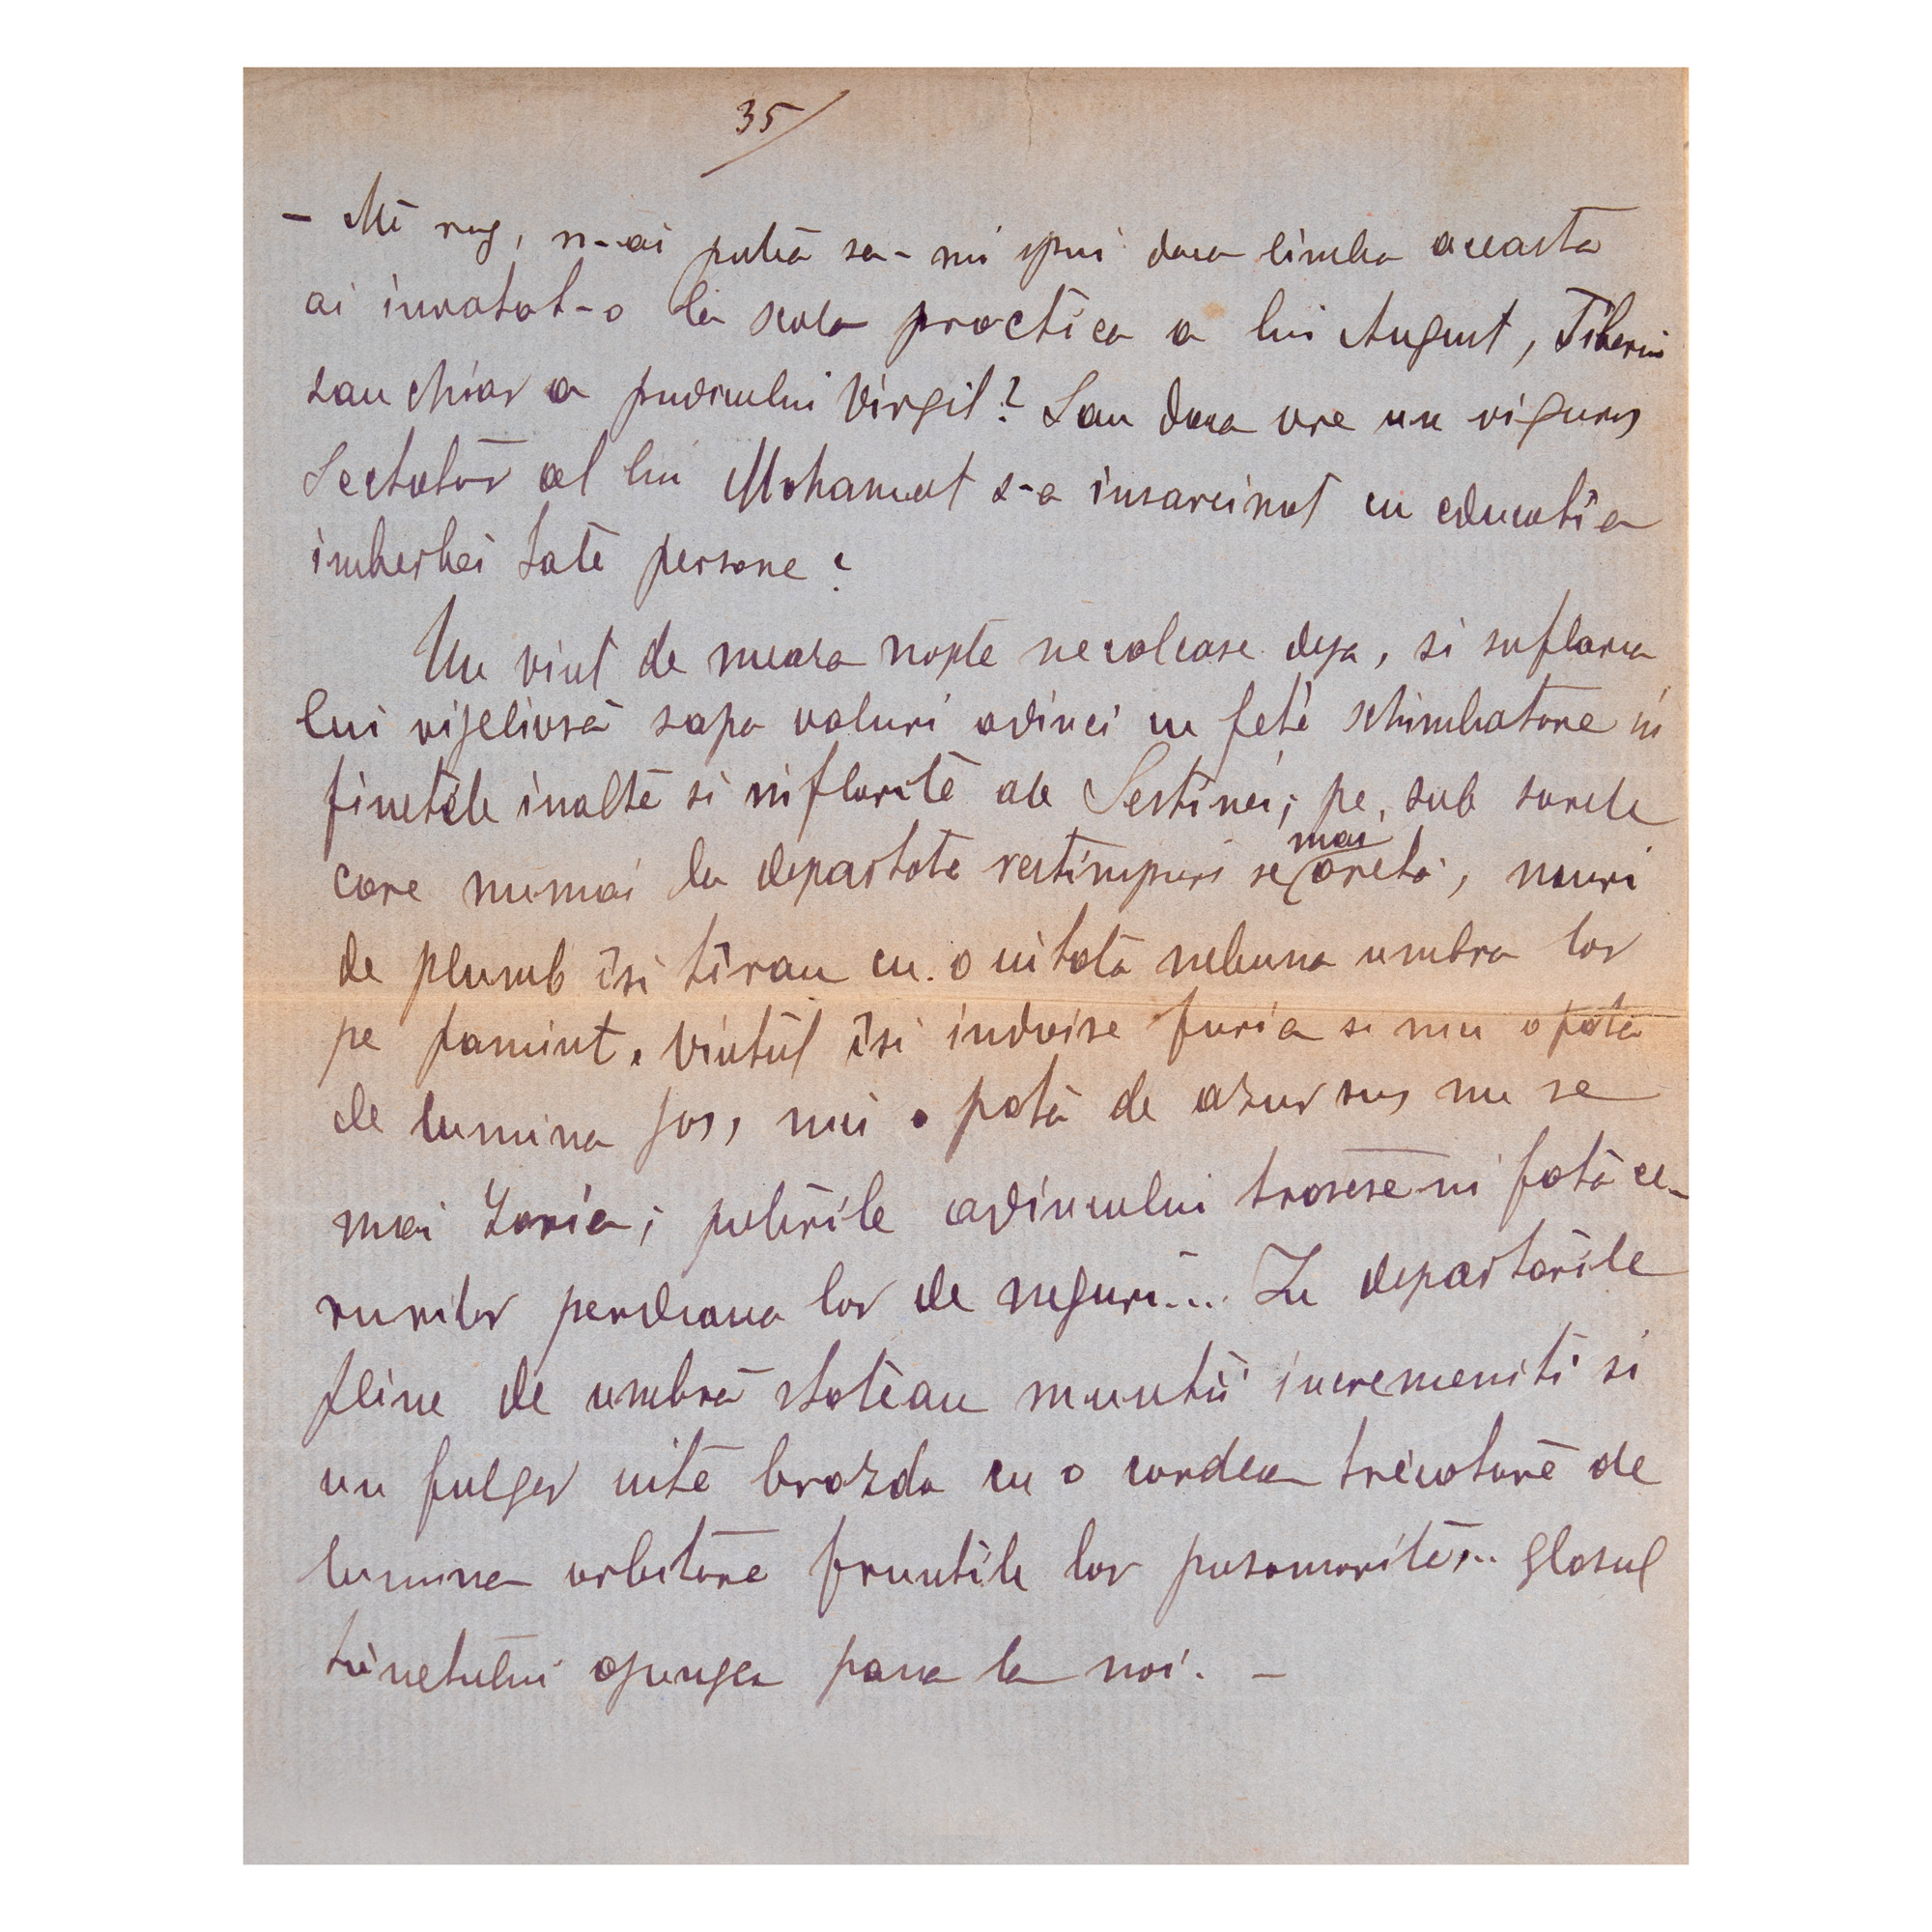 35
- Mĕ rog, n-ai puteà sa-mi spui daca limba aceasta
ai invatat-o la scola practica a lui August, Tiberiu
sau chiar a pudicului Virgil? Sau daca vre un viguros
Sectator al lui Mohamat s-a insarcinat cu educatia
imberbei tale persone?
Un vint de meaza nopte se sculase deja, si suflarea
lui vijeliosă sapa valuri adinci cu fete schimbatore in
finetele inalte si inflorite ale Sestinei; pe sub sorele
care numai la departate restimpuri se mai areta, nouri
de plumb isi tirau cu o iutală nebuna umbra lor
pe pamint. Vintul isi indoise furia si nici o pată
de lumina jos, nici o pată de azur sus nu se
mai zaria; puterile adincului trasese in fată ce-
rurilor perdeaua lor de neguri... In departarile
pline de umbră stateau muntii incremeniti si
un fulger iute brazda cu o cordea tricotore de
lumina orbitore fruntile lor posomorite... glasul
tunetului ajungea pana la noi. -